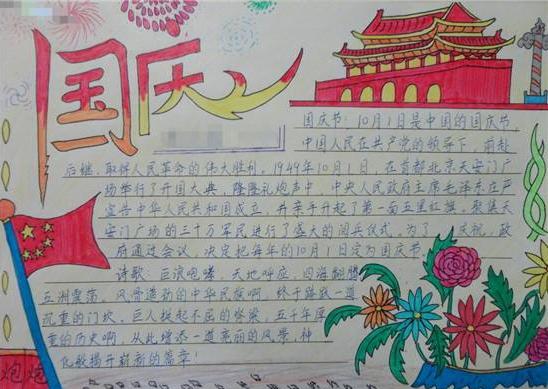 国庆
国庆节：10月1日是中国的国庆节
中国人民在共产党的领导下，前赴
后继，取得人民革命的伟大胜利。1949年10月1日，在首都北京天安门广
场举行了开国大典，隆隆礼炮声中，中央人民政府主席毛泽东庄严
宣告中华人民共和国成立，并亲手升起了第一面五星红旗。聚集天
安门广场的三十万军民进行了盛大的阅兵仪式。为了 庆祝，政
府通过会议，决定把每年的10月1日定为国庆节
诗歌：巨浪咆哮，天地呼应，四海翻腾
五洲震荡，风骨遒劲的中华民族啊，终于踏跃一道
沉重的门坎，巨人挺起不屈的脊梁，五千年厚
重的历史啊，从此增添一道亮丽的风景，神
化般揭开崭新的篇章！